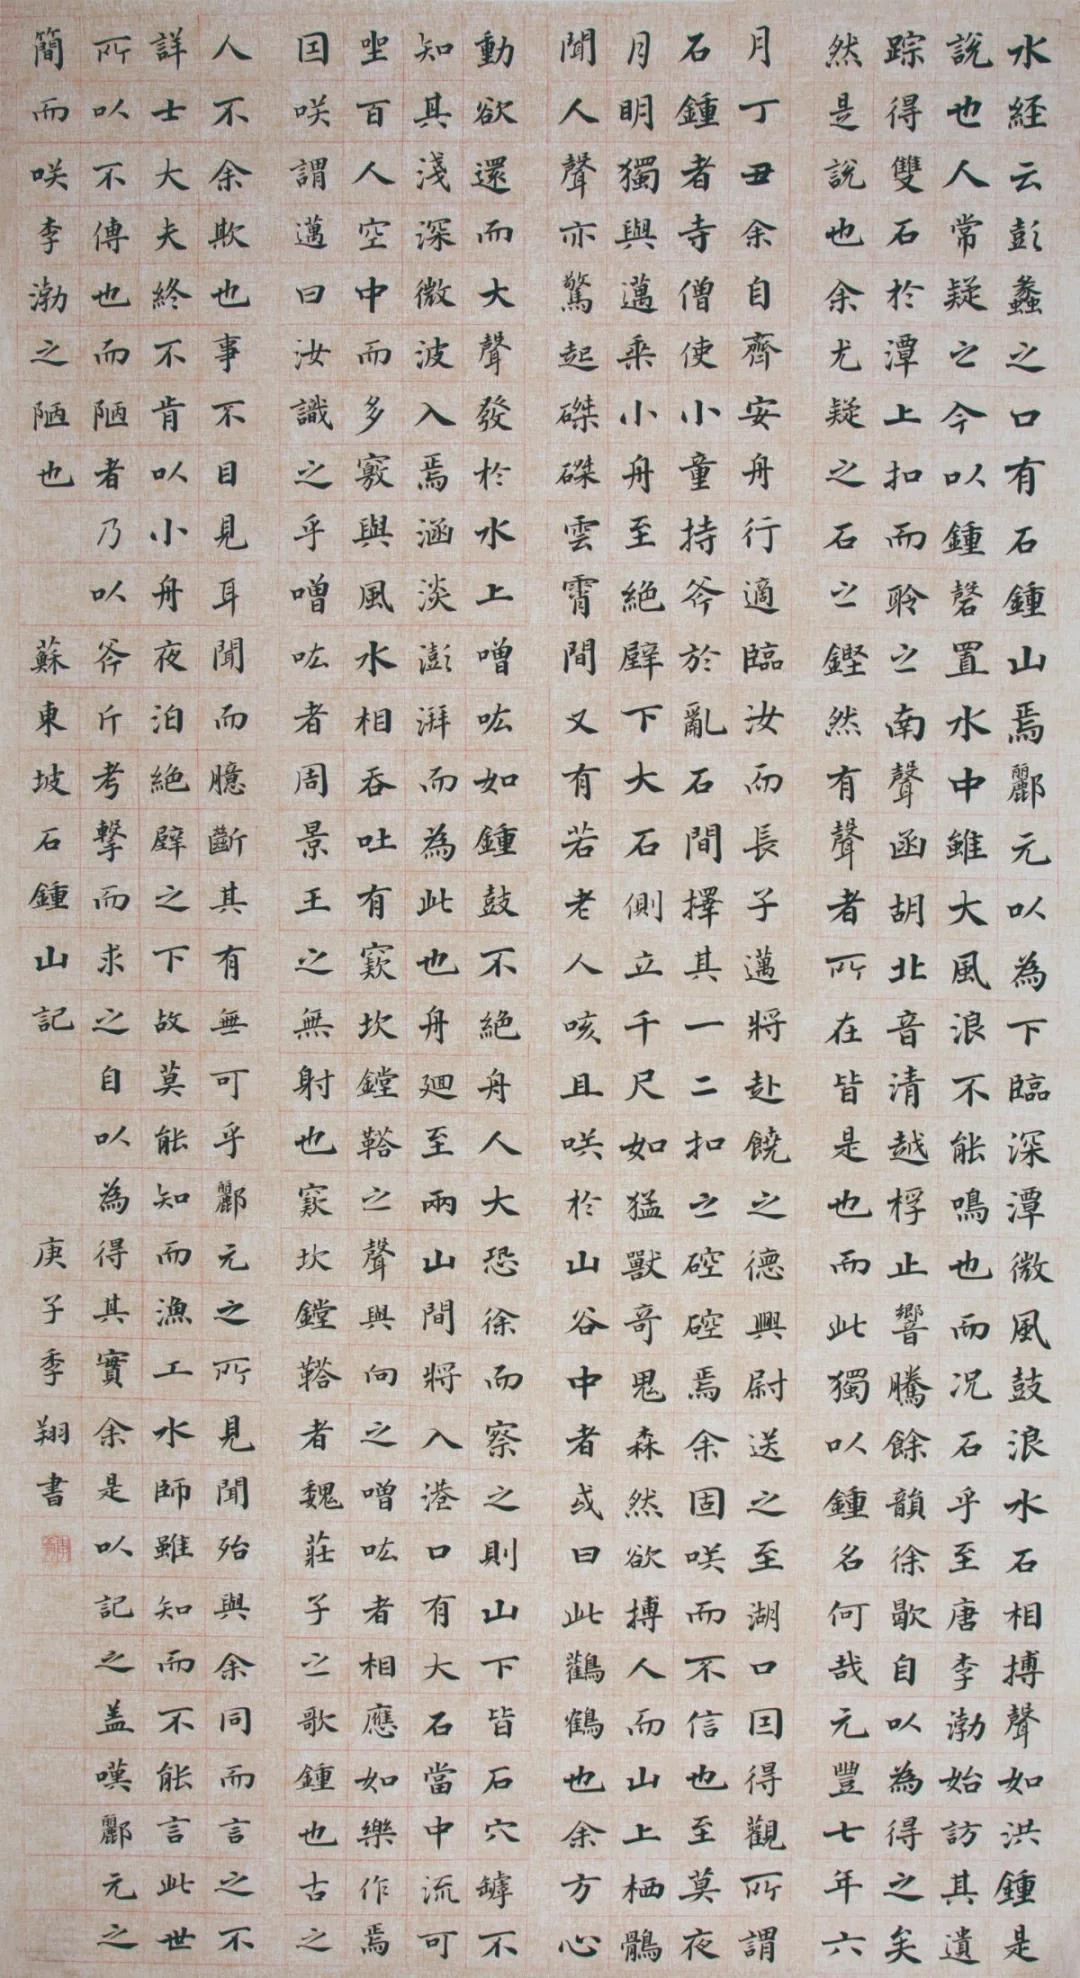 水經云彭蠡之口有石鍾山焉酈元以為下臨深潭微風鼓浪水石相搏聲如洪鍾是
說也人常疑之今以鍾磬置水中雖大風浪不能鳴也而况石乎至唐李渤始訪其遺
踪得雙石於潭上扣而聆之南聲函胡北音清越桴止響騰餘韻徐歇自以為得之矣
然是說也余尤疑之石之鏗然有聲者所在皆是也而此獨以鍾名何哉元豐七年六
月丁丑余自齊安舟行適臨汝而長子邁將赴饒之德興尉送之至湖口因得觀所謂
石鍾者寺僧使小童持斧於亂石間擇其一二扣之硿硿焉余固咲而不信也至莫夜
月明獨與邁乘小舟至絕壁下大石側立千尺如猛獸奇鬼森然欲搏人而山上栖鶻
聞人聲亦驚起磔磔雲霄間又有若老人咳且咲於山谷中者或曰此鸛鶴也余方心
動欲還而大聲發於水上噌吰如鍾鼓不絕舟人大恐徐而察之則山下皆石穴罅不
知其淺深微波入焉涵淡澎湃而為此也舟廻至兩山間將入港口有大石當中流可
坐百人空中而多竅與風水相吞吐有窾坎鏜鞳之聲與向之噌吰者相應如樂作焉
因咲謂邁曰汝識之乎噌吰者周景王之無射也窾坎鏜鞳者魏莊子之歌鍾也古之
人不余欺也事不目見耳聞而臆斷其有無可乎酈元之所見聞殆與余同而言之不
詳士大夫終不肯以小舟夜泊絕壁之下故莫能知而漁工水師雖知而不能言此世
所以不傳也而陋者乃以斧斤考擊而求之自以為得其實余是以記之盖嘆酈元之
簡而咲李渤之陋也 蘇東坡石鍾山記 庚子季翔書